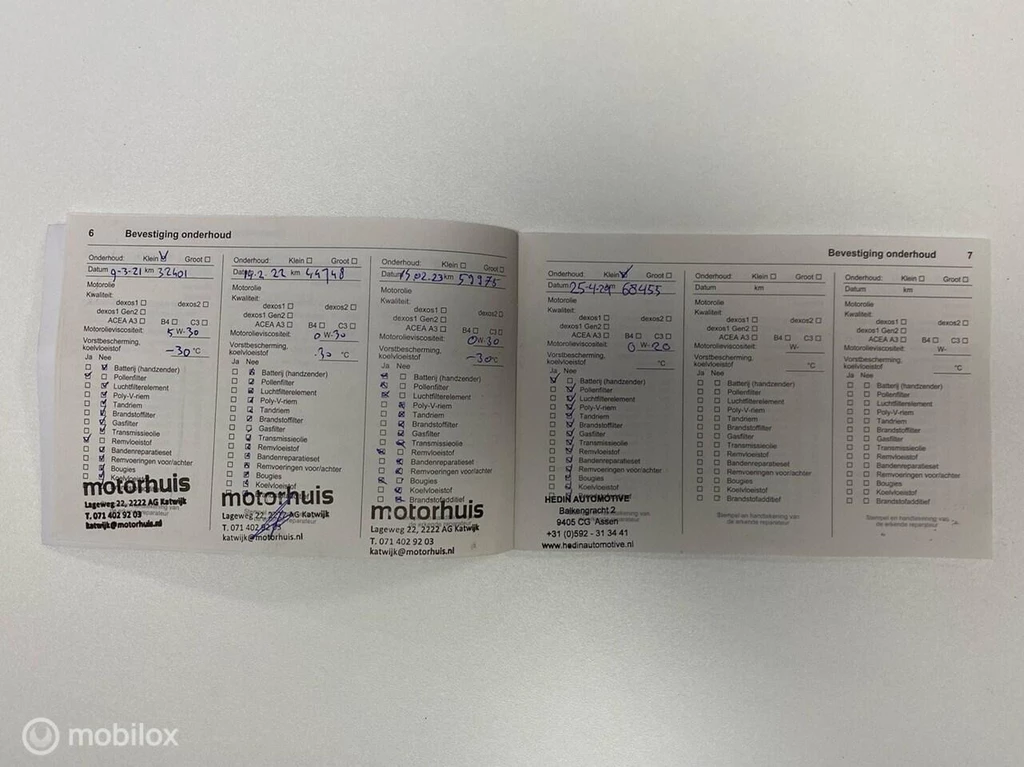 6 Bevestiging onderhoud
Onderhoud: Klein Groot
Datum 9-3-21 km 32401
Motorolie
Kwaliteit:
dexos1 dexos2
dexos1 Gen2
ACEA A3 B4 C3
Motorolieviscositeit: 5 W-30
Vorstbescherming,
koelvloeistof -30 °C
Ja Nee
Batterij (handzender)
Pollenfilter
Luchtfilterelement
Poly-V-riem
Tandriem
Brandstoffilter
Gasfilter
Transmissieolie
Remvloeistof
Bandenreparatieset
Remvoeringen voor/achter
Bougies
Koelvloeistof
motorhuis
Lageweg 22, 2222 AG Katwijk
T. 071 402 92 03
katwijk@motorhuis.nl
Onderhoud: Klein Groot
Datum 14.2.22 km 44748
Motorolie
Kwaliteit:
dexos1 dexos2
dexos1 Gen2
ACEA A3 B4 C3
Motorolieviscositeit: 0 W-30
Vorstbescherming,
koelvloeistof -30 °C
Ja Nee
Batterij (handzender)
Pollenfilter
Luchtfilterelement
Poly-V-riem
Tandriem
Brandstoffilter
Gasfilter
Transmissieolie
Remvloeistof
Bandenreparatieset
Remvoeringen voor/achter
Bougies
Koelvloeistof
motorhuis
Lageweg 22, 2222 AG Katwijk
T. 071 402 92 03
katwijk@motorhuis.nl
Onderhoud: Klein Groot
Datum 15.02.23 km 59975
Motorolie
Kwaliteit:
dexos1 dexos2
dexos1 Gen2
ACEA A3 B4 C3
Motorolieviscositeit: 0W-30
Vorstbescherming,
koelvloeistof -30 °C
Ja Nee
Batterij (handzender)
Pollenfilter
Luchtfilterelement
Poly-V-riem
Tandriem
Brandstoffilter
Gasfilter
Transmissieolie
Remvloeistof
Bandenreparatieset
Remvoeringen voor/achter
Bougies
Koelvloeistof
Brandstofadditief
motorhuis
Lageweg 22, 2222 AG Katwijk
T. 071 402 92 03
katwijk@motorhuis.nl
Bevestiging onderhoud 7
Onderhoud: Klein Groot
Datum 25-4-24 km 68455
Motorolie
Kwaliteit:
dexos1 dexos2
dexos1 Gen2
ACEA A3 B4 C3
Motorolieviscositeit: 0 W-20
Vorstbescherming,
koelvloeistof °C
Ja Nee
Batterij (handzender)
Pollenfilter
Luchtfilterelement
Poly-V-riem
Tandriem
Brandstoffilter
Gasfilter
Transmissieolie
Remvloeistof
Bandenreparatieset
Remvoeringen voor/achter
Bougies
Koelvloeistof
HEDIN AUTOMOTIVE
Balkengracht 2
9405 CG Assen
+31 (0)592 - 31 34 41
www.hedinautomotive.nl
Onderhoud: Klein Groot
Datum km
Motorolie
Kwaliteit:
dexos1 dexos2
dexos1 Gen2
ACEA A3 B4 C3
Motorolieviscositeit: W-
Vorstbescherming,
koelvloeistof °C
Ja Nee
Batterij (handzender)
Pollenfilter
Luchtfilterelement
Poly-V-riem
Tandriem
Brandstoffilter
Gasfilter
Transmissieolie
Remvloeistof
Bandenreparatieset
Remvoeringen voor/achter
Bougies
Koelvloeistof
Brandstofadditief
Stempel en handtekening van
de erkende reparateur
Onderhoud: Klein Groot
Datum km
Motorolie
Kwaliteit:
dexos1 dexos2
dexos1 Gen2
ACEA A3 B4 C3
Motorolieviscositeit: W-
Vorstbescherming,
koelvloeistof °C
Ja Nee
Batterij (handzender)
Pollenfilter
Luchtfilterelement
Poly-V-riem
Tandriem
Brandstoffilter
Gasfilter
Transmissieolie
Remvloeistof
Bandenreparatieset
Remvoeringen voor/achter
Bougies
Koelvloeistof
Brandstofadditief
Stempel en handtekening van
de erkende reparateur
mobilox